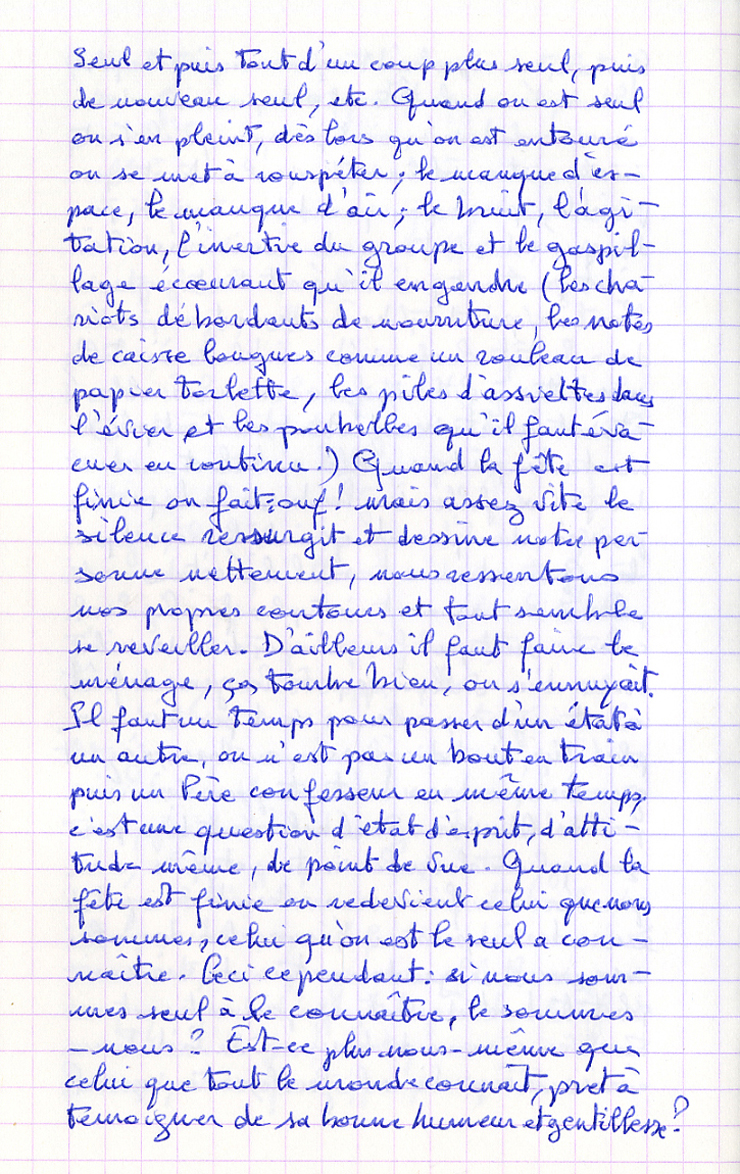 Seul et puis tout d'un coup plus seul, puis
de nouveau seul, etc. Quand on est seul
on s'en pleint, dès lors qu'on est entouré
on se met à rouspéter ; le manque d'es-
pace, le manque d'air ; le bruit, l'agi-
tation, l'inertie du groupe et le gaspil-
lage écoeurant qu'il engendre (les cha-
riots débordants de nourriture, les notes
de caisse longues comme un rouleau de
papier toilette, les piles d'assiettes dans
l'évier et les poubelles qu'il faut éva-
cuer en continu.) Quand la fête est
finie on fait : ouf ! mais assez vite le
silence ressurgit et dessine notre per-
sonne nettement, nous ressentons
nos propres contours et tout semble
se reveiller. D'ailleurs il faut faire le
ménage, ça tombe bien, on s'ennuyait.
Il faut un temps pour passer d'un état à
un autre, on n'est pas un bout en train
puis un Père confesseur en même temps,
c'est une question d'état d'esprit, d'atti-
tude même, de point de vue. Quand la
fête est finie on redevient celui que nous
sommes, celui qu'on est le seul a con-
naître. Ceci cependant : si nous som-
mes seul à le connaître, le sommes
-nous ? Est-ce plus nous-même que
celui que tout le monde connait, pret à
temoigner de sa bonne humeur et gentillesse ?